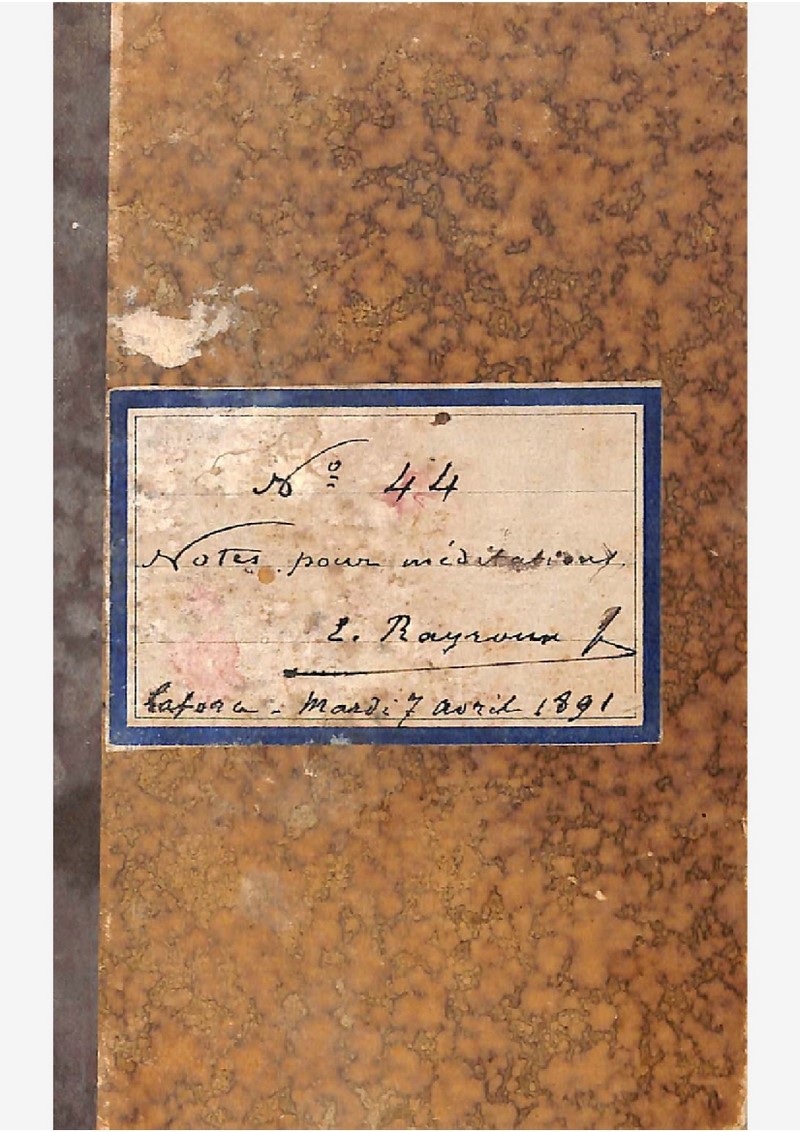 Nº 44
Notes pour méditations.
E. Rayroux
Mardi 7 avril 1891